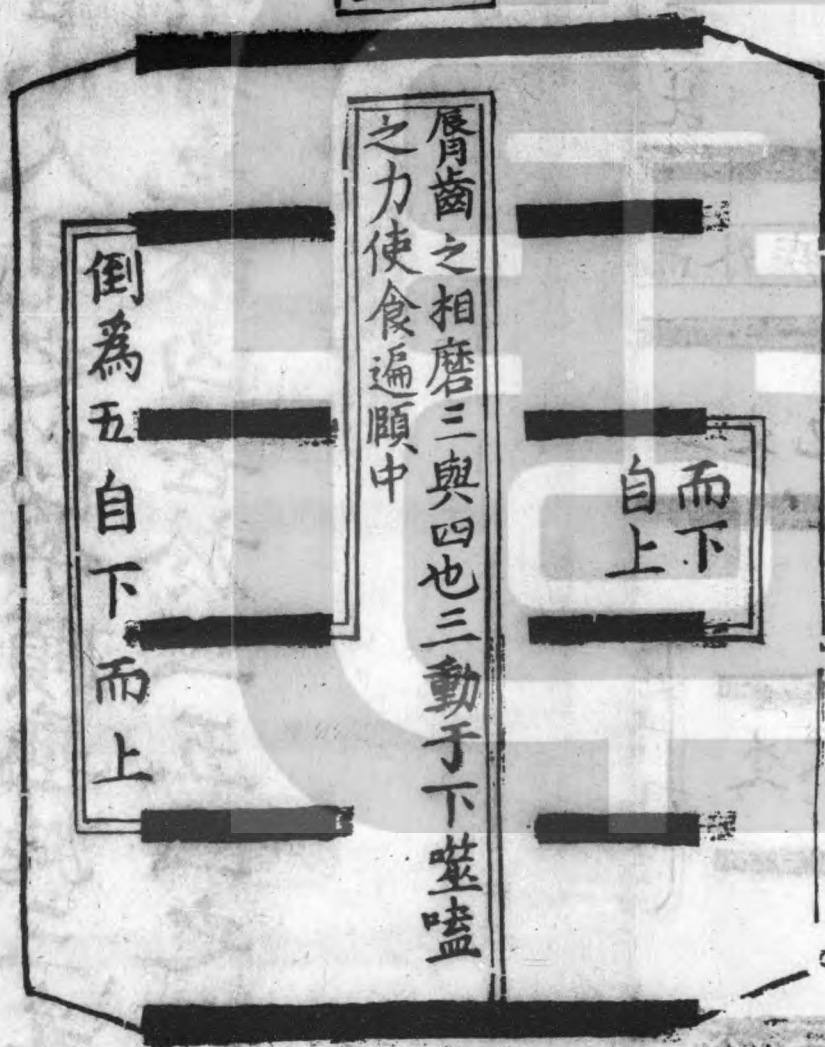 自上
而下
脣齒之相磨三與四也三動于下噬嗑
之力使食遍頤中
倒爲五自下而上